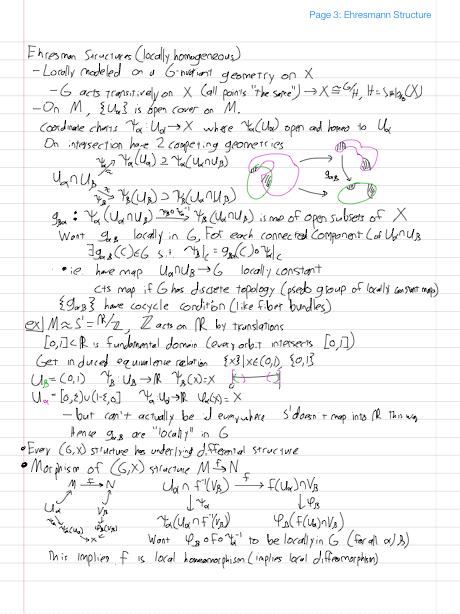 Page 3: Ehresmann Structure
Ehresman Structures (locally homogeneous)
- Locally modeled on a G-invariant geometry on X
- G acts transitively on X (all points "the same") → X ≅ G/H, H = Stab_G(X)
- On M, {Uα} is open cover on M.
Coordinate charts Ψα: Uα → X where Ψα(Uα) open and homeo to Uα
On intersection have 2 competing geometries
Ψα ↗ Ψα(Uα) ⊇ Ψα(Uα∩Uβ)
Uα∩Uβ
Ψβ ↘ Ψβ(Uβ) ⊇ Ψβ(Uα∩Uβ)
gαβ
gβα : Ψα(Uα∩Uβ) → Ψβ(Uα∩Uβ) is map of open subsets of X
Want gαβ locally in G, For each connected component C of Uα∩Uβ
∃ gαβ(C) ∈ G s.t. Ψβ|c = gβα(C) ∘ Ψα|c
• ie. have map Uα∩Uβ → G locally constant
cts map if G has discrete topology (pseudo group of locally constant maps)
{gαβ} have cocycle condition (like fiber bundles)
ex) M ≈ S' = ℝ/ℤ, ℤ acts on ℝ by translations
[0,1] ⊂ ℝ is fundamental domain (every orbit intersects [0,1])
Get induced equivalence relation {x} | x∈(0,1), {0,1}
Uβ = (0,1) Ψβ: Uβ → ℝ Ψβ(x) = x
Uα = [0,ε) ∪ (1-ε,0] Ψα: Uα → ℝ Ψα(x) = x
- but can't actually be id everywhere S' doesn't map into ℝ this way
Hence gαβ are "locally" in G
• Every (G,X) structure has underlying differential structure
• Morphism of (G,X) structure M →f N
M →f N Uα ∩ f⁻¹(Vβ) →f f(Uα) ∩ Vβ
Uα Vβ ↓Ψα ↓φβ
Ψα(Uα) φβ(Vβ) Ψα(Uα ∩ f⁻¹(Vβ)) φβ(f(Uα) ∩ Vβ)
X Want φβ ∘ f ∘ Ψα⁻¹ to be locally in G (for all α, β)
This implies f is local homeomorphism (implies local diffeomorphism)